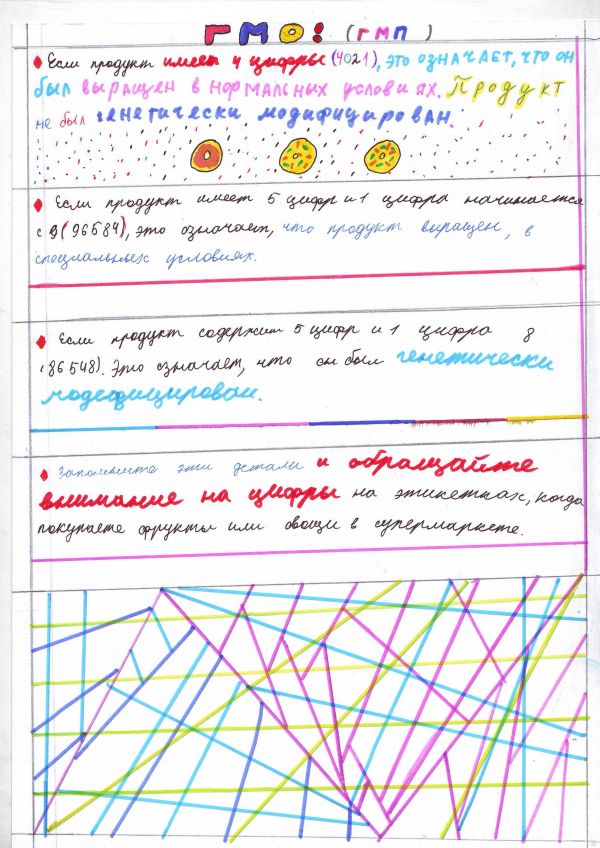 ГМО! (ГМП)
Если продукт имеет 4 цифры (4021), это означает, что он
был выращен в нормальных условиях. Продукт
не был генетически модифицирован.
Если продукт имеет 5 цифр и 1 цифра начинается
с 9 (96584), это означает, что продукт выращен, в
специальных условиях.
Если продукт содержит 5 цифр и 1 цифра 8
(86548). Это означает, что он был генетически
модефицирован.
Запомните эти детали и обращайте
внимание на цифры на этикетках, когда
покупаете фрукты или овощи в супермаркете.